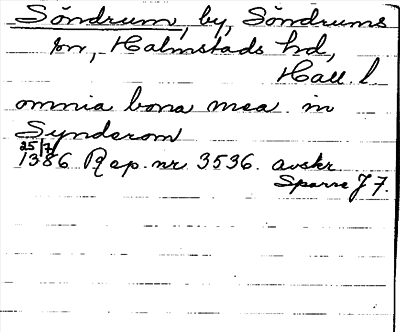 Söndrum, by, Söndrums
sn, Halmstads hd,
Hall. l.
omnia bona mea in
Synderom
25/7
1386 Rep. nr 3536. avskr
Sparre J 7.